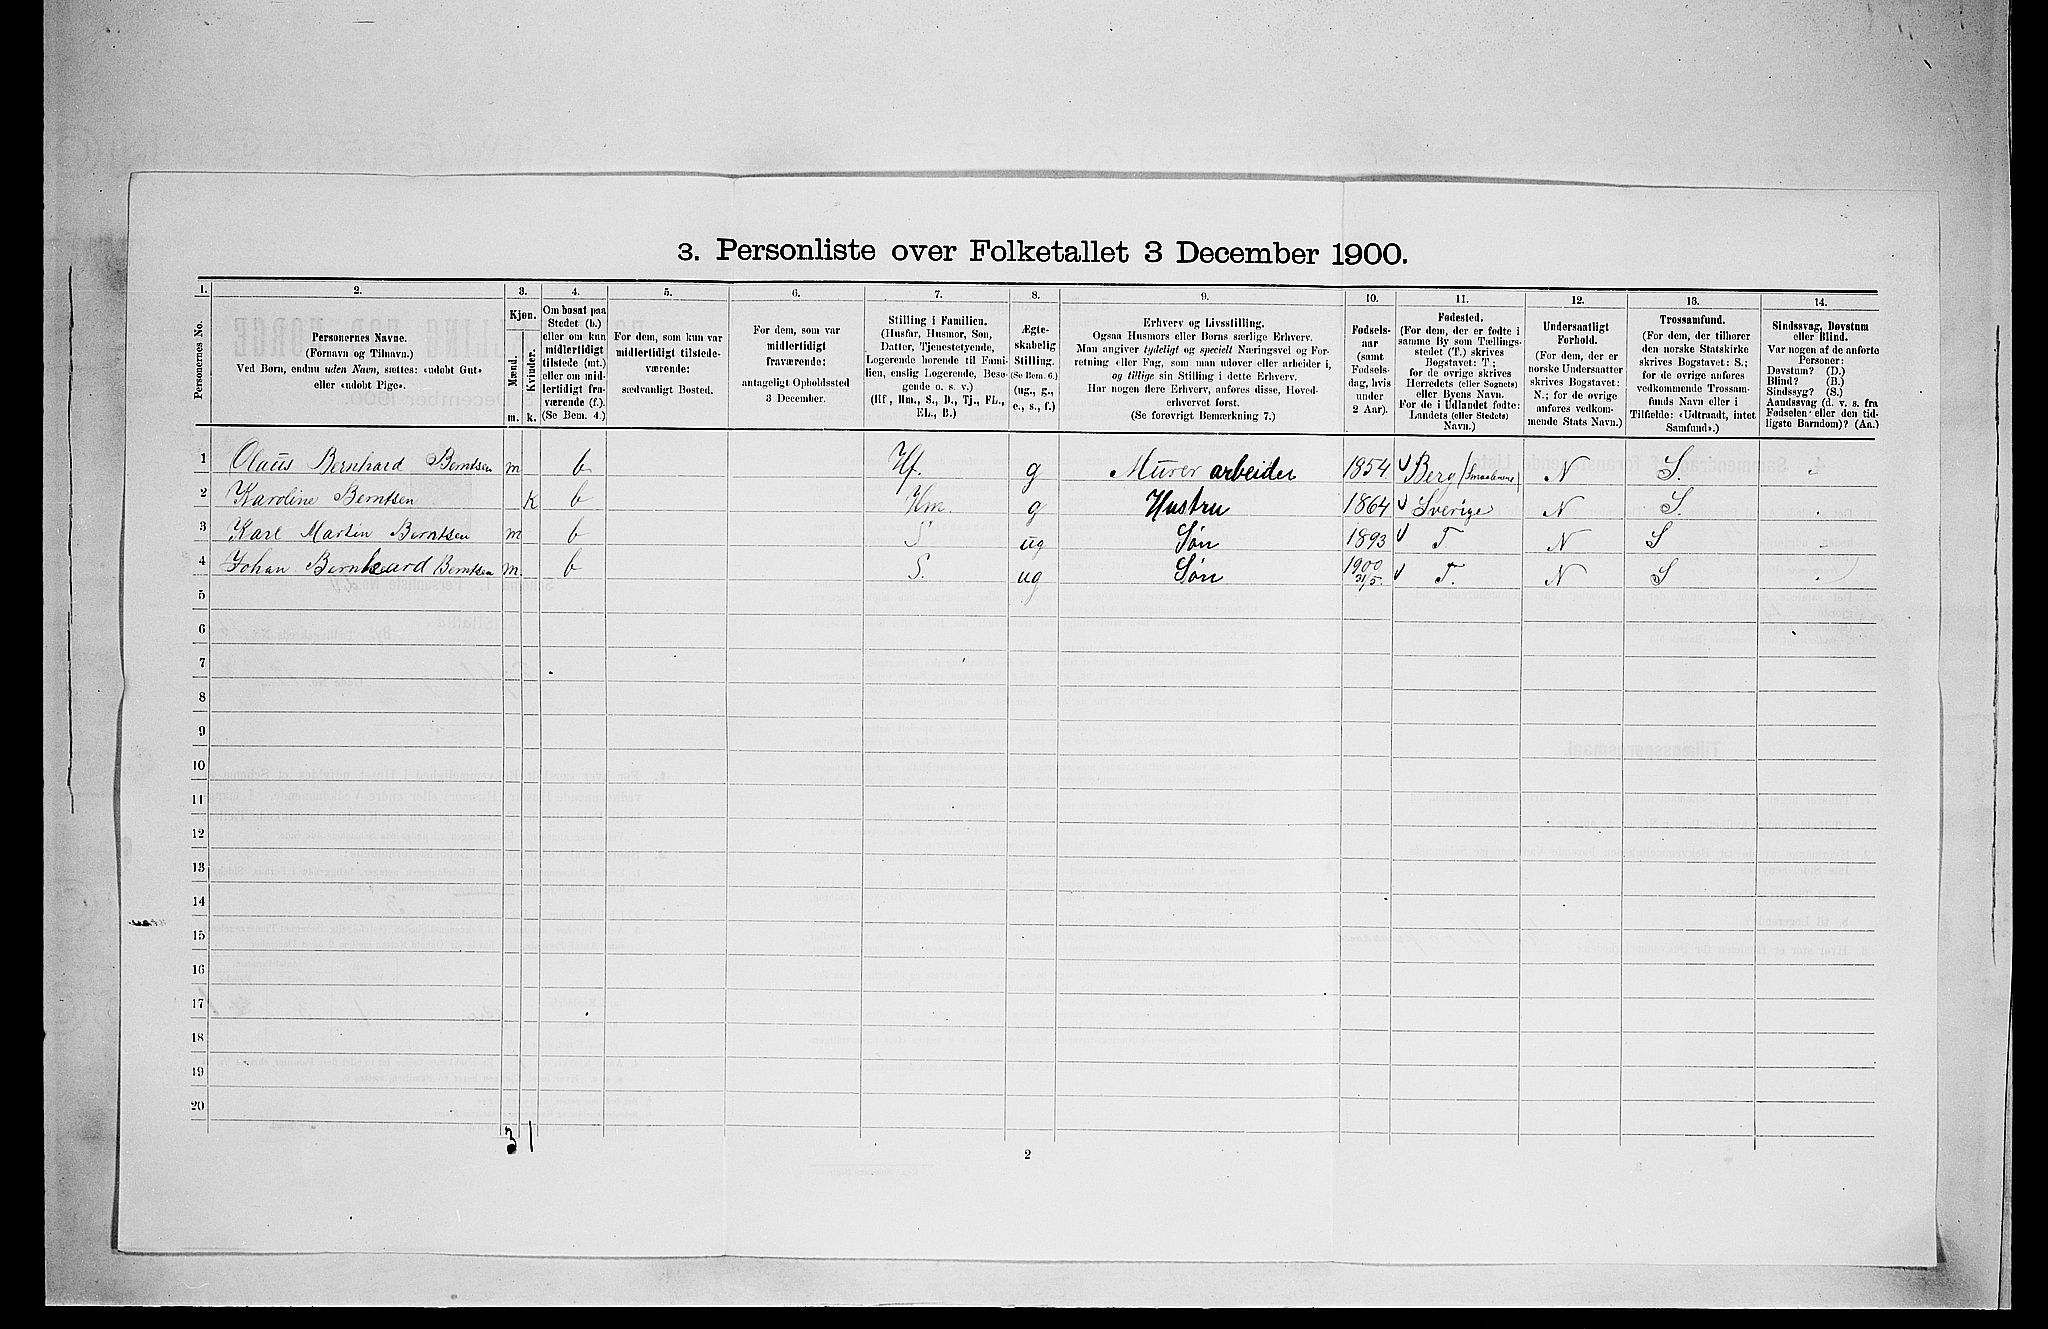 3. Personliste over Folketallet 3 December 1900.
1. 2. 3. 4. 5. 6. 7. 8. 9. 10. 11. 12. 13. 14.
Personernes No.
Personernes Navne.
(Fornavn og Tilnavn.)
Ved Børn, endnu uden Navn, sættes: «udøbt Gut»
eller «udøbt Pige».
Kjøn.
Mænd.
Kvinder.
m. k.
Om bosat paa
Stedet (b.)
eller om kun
midlertidigt
tilstede (mt.)
eller om mid-
lertidigt fra-
værende (f.).
(Se Bem. 4.)
For dem, som kun var
midlertidigt tilstede-
værende:
sædvanligt Bosted.
For dem, som var
midlertidigt
fraværende:
antageligt Opholdssted
3 December.
Stilling i Familien.
(Husfar, Husmor, Søn,
Datter, Tjenestetyende,
Logerende hørende til Fami-
lien, enslig Logerende, Besø-
gende o. s. v.)
(Hf, Hm., S., D., Tj., FL.,
EL., B.)
Ægte-
skabelig
Stilling.
(Se Bem. 6.)
(ug., g.,
e., s., f.)
Erhverv og Livsstilling.
Ogsaa Husmors eller Børns særlige Erhverv.
Man angiver tydeligt og specielt Næringsvei og For-
retning eller Fag, som man udøver eller arbeider i,
og tillige sin Stilling i dette Erhverv.
Har nogen flere Erhverv, anføres disse, Hoved-
erhvervet først.
(Se forøvrigt Bemærkning 7.)
Fødsels-
aar
(samt
Fødsels-
dag, hvis
under
2 Aar).
Fødested.
(For dem, der er fødte i
samme By som Tællings-
stedet (T.) skrives
Bogstavet: T;
for de øvrige skrives
Herredets (eller Sognets)
eller Byens Navn.
For de i Udlandet fødte:
Landets (eller Stedets)
Navn.)
Undersaatligt
Forhold.
(For dem, der er
norske Undersaatter
skrives Bogstavet:
N.; for de øvrige
anføres vedkom-
mende Stats Navn.)
Trossamfund.
(For dem, der tilhører
den norske Statskirke
skrives Bogstavet: S.;
for de øvrige anføres
vedkommende Trossam-
funds Navn eller i
Tilfælde: «Udtraadt, intet
Samfund».)
Sindssvag, Døvstum
eller Blind.
Var nogen af de anførte
Personer:
Døvstum? (D.)
Blind? (B.)
Sindssyg? (S.)
Aandssvag (d. v. s. fra
Fødselen eller den tid-
ligste Barndom)? (Aa.)
1 Olaus Bernhard Berntsen m b Hf. g Murer arbeider 1854 Berg (Smaalenene) N S.
2 Karoline Berntsen k b Hm. g Hustru 1864 Sverige N S.
3 Karl Martin Berntsen m b S ug Søn 1893 T. N S
4 Johan Bernhard Berntsen m b S. ug Søn 1900 31/5. T. N S
5
6
7
8
9
10
11
12
13
14
15
16
17
18
19
20
3 1
2